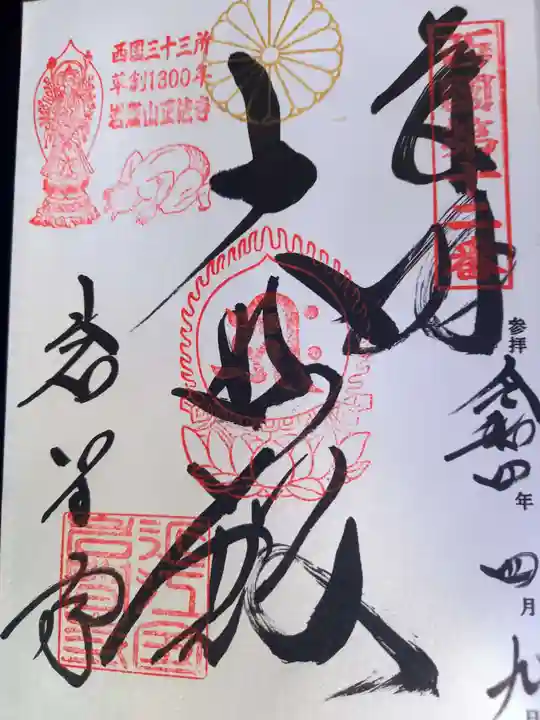 奉拝
西国第十二番
参拝
令和四年
四月九日
大悲殿
西国三十三所
草創1300年
岩間山正法寺
岩間寺